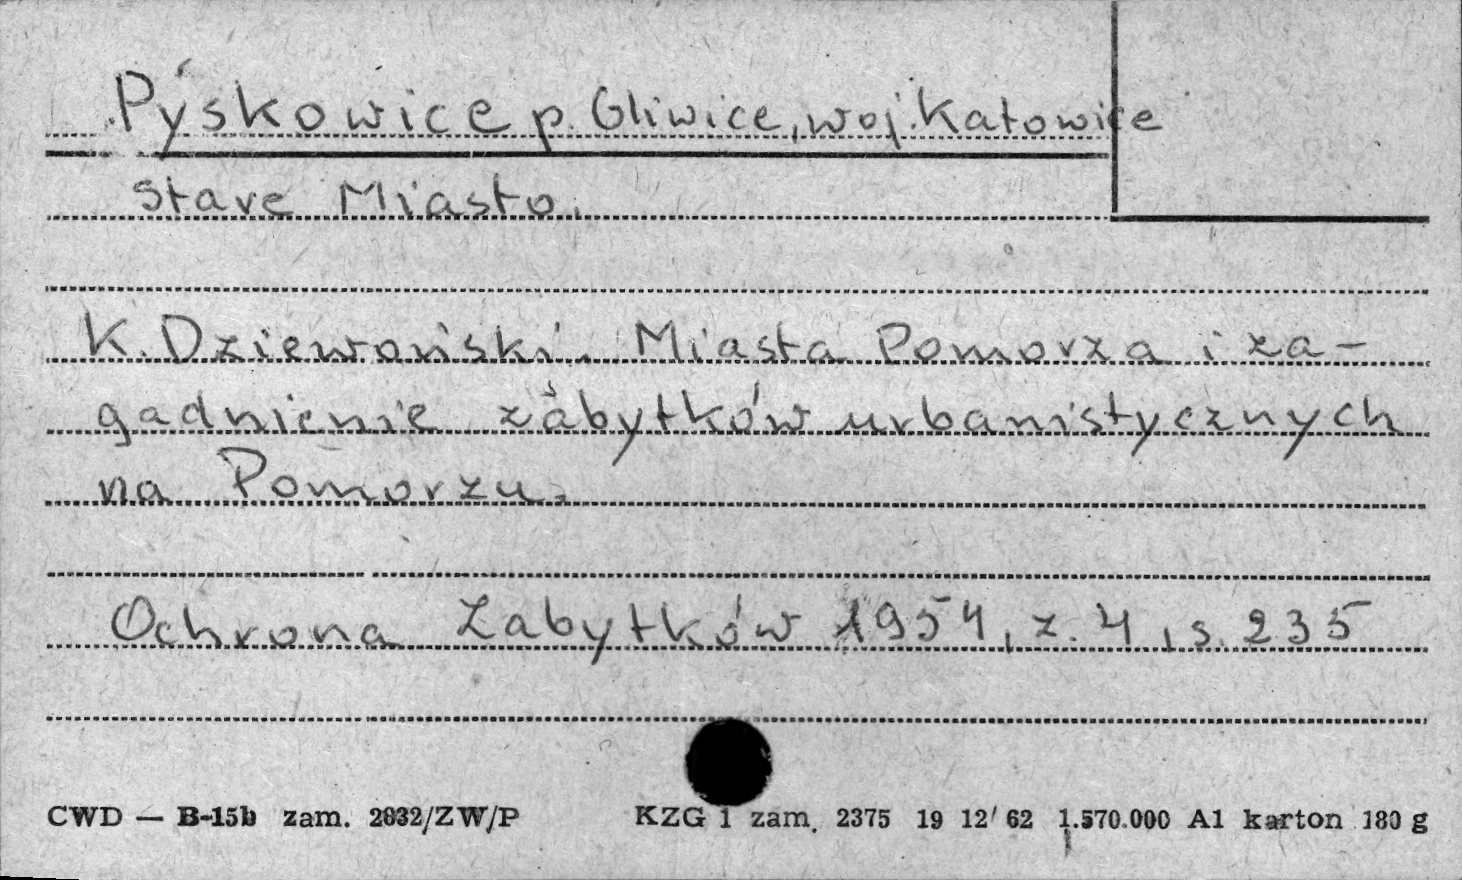 Pyskowice p. Gliwice, woj. Katowice
Stare Miasto.
K. Dziewoński. Miasta Pomorza i za-
gadnienie zabytków urbanistycznych
na Pomorzu.
Ochrona Zabytków 1954, z. 4, s. 235
CWD — B-15b zam. 2032/ZW/P KZG 1 zam. 2375 19 12 62 1.570.000 A1 karton 180 g